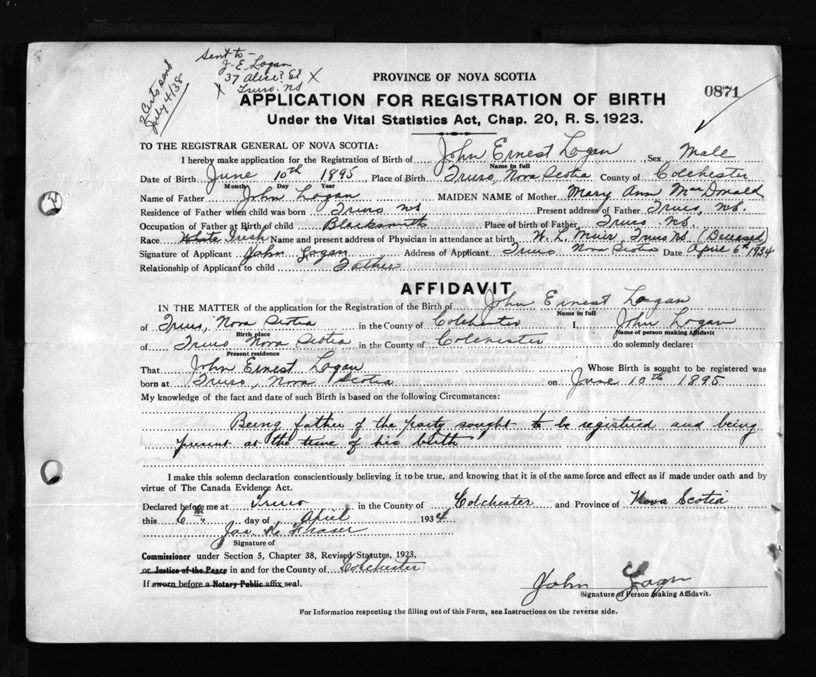 Sent to -
J. E. Logan
37 Alice? St X
X Truro. NS
2 Certs sent
July 4/38
PROVINCE OF NOVA SCOTIA
0871
APPLICATION FOR REGISTRATION OF BIRTH
Under the Vital Statistics Act, Chap. 20, R. S. 1923.
TO THE REGISTRAR GENERAL OF NOVA SCOTIA:
I hereby make application for the Registration of Birth of John Ernest Logan Sex Male
Name in full
Date of Birth June 10th 1895 Place of Birth Truro, Nova Scotia County of Colchester
Month Day Year
Name of Father John Logan MAIDEN NAME of Mother Mary Ann MacDonald
Residence of Father when child was born Truro NS Present address of Father Truro, NS.
Occupation of Father at Birth of child Blacksmith Place of birth of Father Truro NS.
Race White Irish Name and present address of Physician in attendance at birth W. L. Muir, Truro NS. (Deceased)
Signature of Applicant John Logan Address of Applicant Truro Nova Scotia Date April 6th 1934
Relationship of Applicant to child Father
AFFIDAVIT
IN THE MATTER of the application for the Registration of the Birth of John Ernest Logan
Name in full
of Truro, Nova Scotia in the County of Colchester I, John Logan
Birth place Name of person making Affidavit
of Truro Nova Scotia in the County of Colchester do solemnly declare:
Present residence
That John Ernest Logan Whose Birth is sought to be registered was
born at Truro, Nova Scotia on June 10th 1895
My knowledge of the fact and date of such Birth is based on the following Circumstances:
Being father of the party sought to be registered and being
present at the time of his birth
I make this solemn declaration conscientiously believing it to be true, and knowing that it is of the same force and effect as if made under oath and by
virtue of The Canada Evidence Act.
Declared before me at Truro in the County of Colchester and Province of Nova Scotia
this 6th day of April 1934
Jas. K. Fraser
Signature of
Commissioner under Section 5, Chapter 38, Revised Statutes, 1923.
or Justice of the Peace in and for the County of Colchester
If sworn before a Notary Public affix seal.
John Logan
Signature of Person Making Affidavit.
For Information respecting the filling out of this Form, see Instructions on the reverse side.